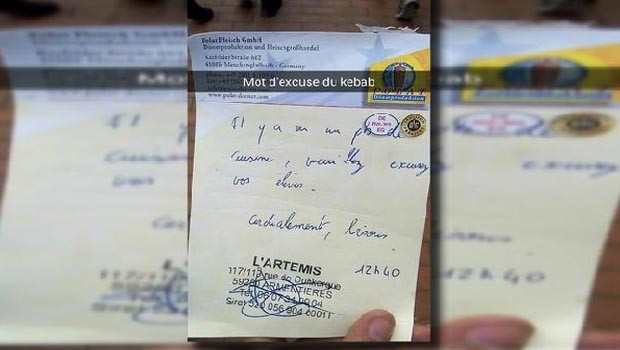 PolatFleisch GmbH
Dönerproduktion und Fleischgroßhandel
Mönchengladbach - Germany
www.polat-doener.com
Mot d'excuse du kebab
Dönerproduktion
DE
EG
Il y a eu un pb de
cuisine, veuillez excusez
vos élèves.
Cordialement, bisous
12h40
L'ARTEMIS
117/119 rue de Dunkerque
59280 ARMENTIERES
Tel
Siret 520 056 904 00011